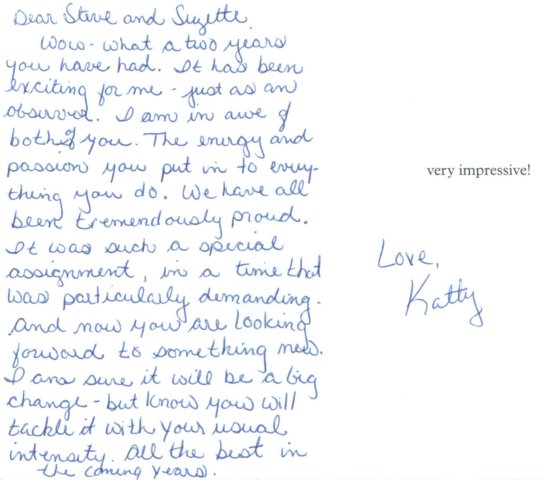 Dear Steve and Suzette,
Wow - what a two years
you have had. It has been
exciting for me - just as an
observer. I am in awe of
both of you. The energy and
passion you put in to every-
thing you do. We have all
been tremendously proud.
It was such a special
assignment, in a time that
was particularly demanding.
And now you are looking
forward to something new.
I am sure it will be a big
change - but know you will
tackle it with your usual
intensity. All the best in
the coming years.
very impressive!
Love,
Katty